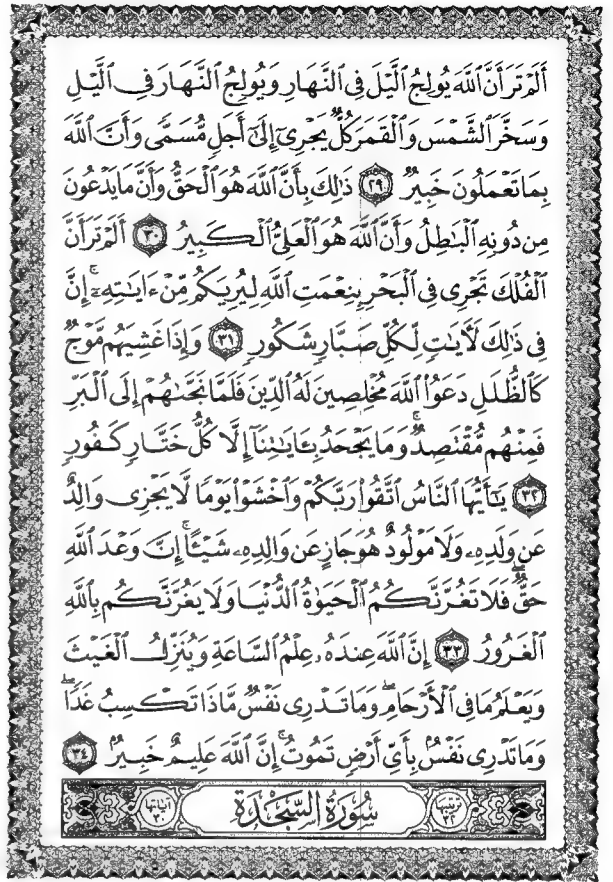 أَلَمْ تَرَ أَنَّ ٱللَّهَ يُولِجُ ٱلَّيْلَ فِى ٱلنَّهَارِ وَيُولِجُ ٱلنَّهَارَ فِى ٱلَّيْلِ
وَسَخَّرَ ٱلشَّمْسَ وَٱلْقَمَرَ كُلٌّ يَجْرِىٓ إِلَىٰٓ أَجَلٍ مُّسَمًّى وَأَنَّ ٱللَّهَ
بِمَا تَعْمَلُونَ خَبِيرٌ ٢٩ ذَٰلِكَ بِأَنَّ ٱللَّهَ هُوَ ٱلْحَقُّ وَأَنَّ مَا يَدْعُونَ
مِن دُونِهِ ٱلْبَٰطِلُ وَأَنَّ ٱللَّهَ هُوَ ٱلْعَلِىُّ ٱلْكَبِيرُ ٣٠ أَلَمْ تَرَ أَنَّ
ٱلْفُلْكَ تَجْرِى فِى ٱلْبَحْرِ بِنِعْمَتِ ٱللَّهِ لِيُرِيَكُم مِّنْ ءَايَٰتِهِۦٓ ۚ إِنَّ
فِى ذَٰلِكَ لَءَايَٰتٍ لِّكُلِّ صَبَّارٍ شَكُورٍ ٣١ وَإِذَا غَشِيَهُم مَّوْجٌ
كَٱلظُّلَلِ دَعَوُا۟ ٱللَّهَ مُخْلِصِينَ لَهُ ٱلدِّينَ فَلَمَّا نَجَّىٰهُمْ إِلَى ٱلْبَرِّ
فَمِنْهُم مُّقْتَصِدٌ ۚ وَمَا يَجْحَدُ بِـَٔايَٰتِنَآ إِلَّا كُلُّ خَتَّارٍ كَفُورٍ
٣٢ يَٰٓأَيُّهَا ٱلنَّاسُ ٱتَّقُوا۟ رَبَّكُمْ وَٱخْشَوْا۟ يَوْمًا لَّا يَجْزِى وَالِدٌ
عَن وَلَدِهِۦ وَلَا مَوْلُودٌ هُوَ جَازٍ عَن وَالِدِهِۦ شَيْـًٔا ۚ إِنَّ وَعْدَ ٱللَّهِ
حَقٌّ ۖ فَلَا تَغُرَّنَّكُمُ ٱلْحَيَوٰةُ ٱلدُّنْيَا وَلَا يَغُرَّنَّكُم بِٱللَّهِ
ٱلْغَرُورُ ٣٣ إِنَّ ٱللَّهَ عِندَهُۥ عِلْمُ ٱلسَّاعَةِ وَيُنَزِّلُ ٱلْغَيْثَ
وَيَعْلَمُ مَا فِى ٱلْأَرْحَامِ ۖ وَمَا تَدْرِى نَفْسٌ مَّاذَا تَكْسِبُ غَدًا ۖ
وَمَا تَدْرِى نَفْسٌۢ بِأَىِّ أَرْضٍ تَمُوتُ ۚ إِنَّ ٱللَّهَ عَلِيمٌ خَبِيرٌۢ ٣٤
ترتيبها ٣٢ سُورَةُ السَّجْدَةِ آياتها ٣٠